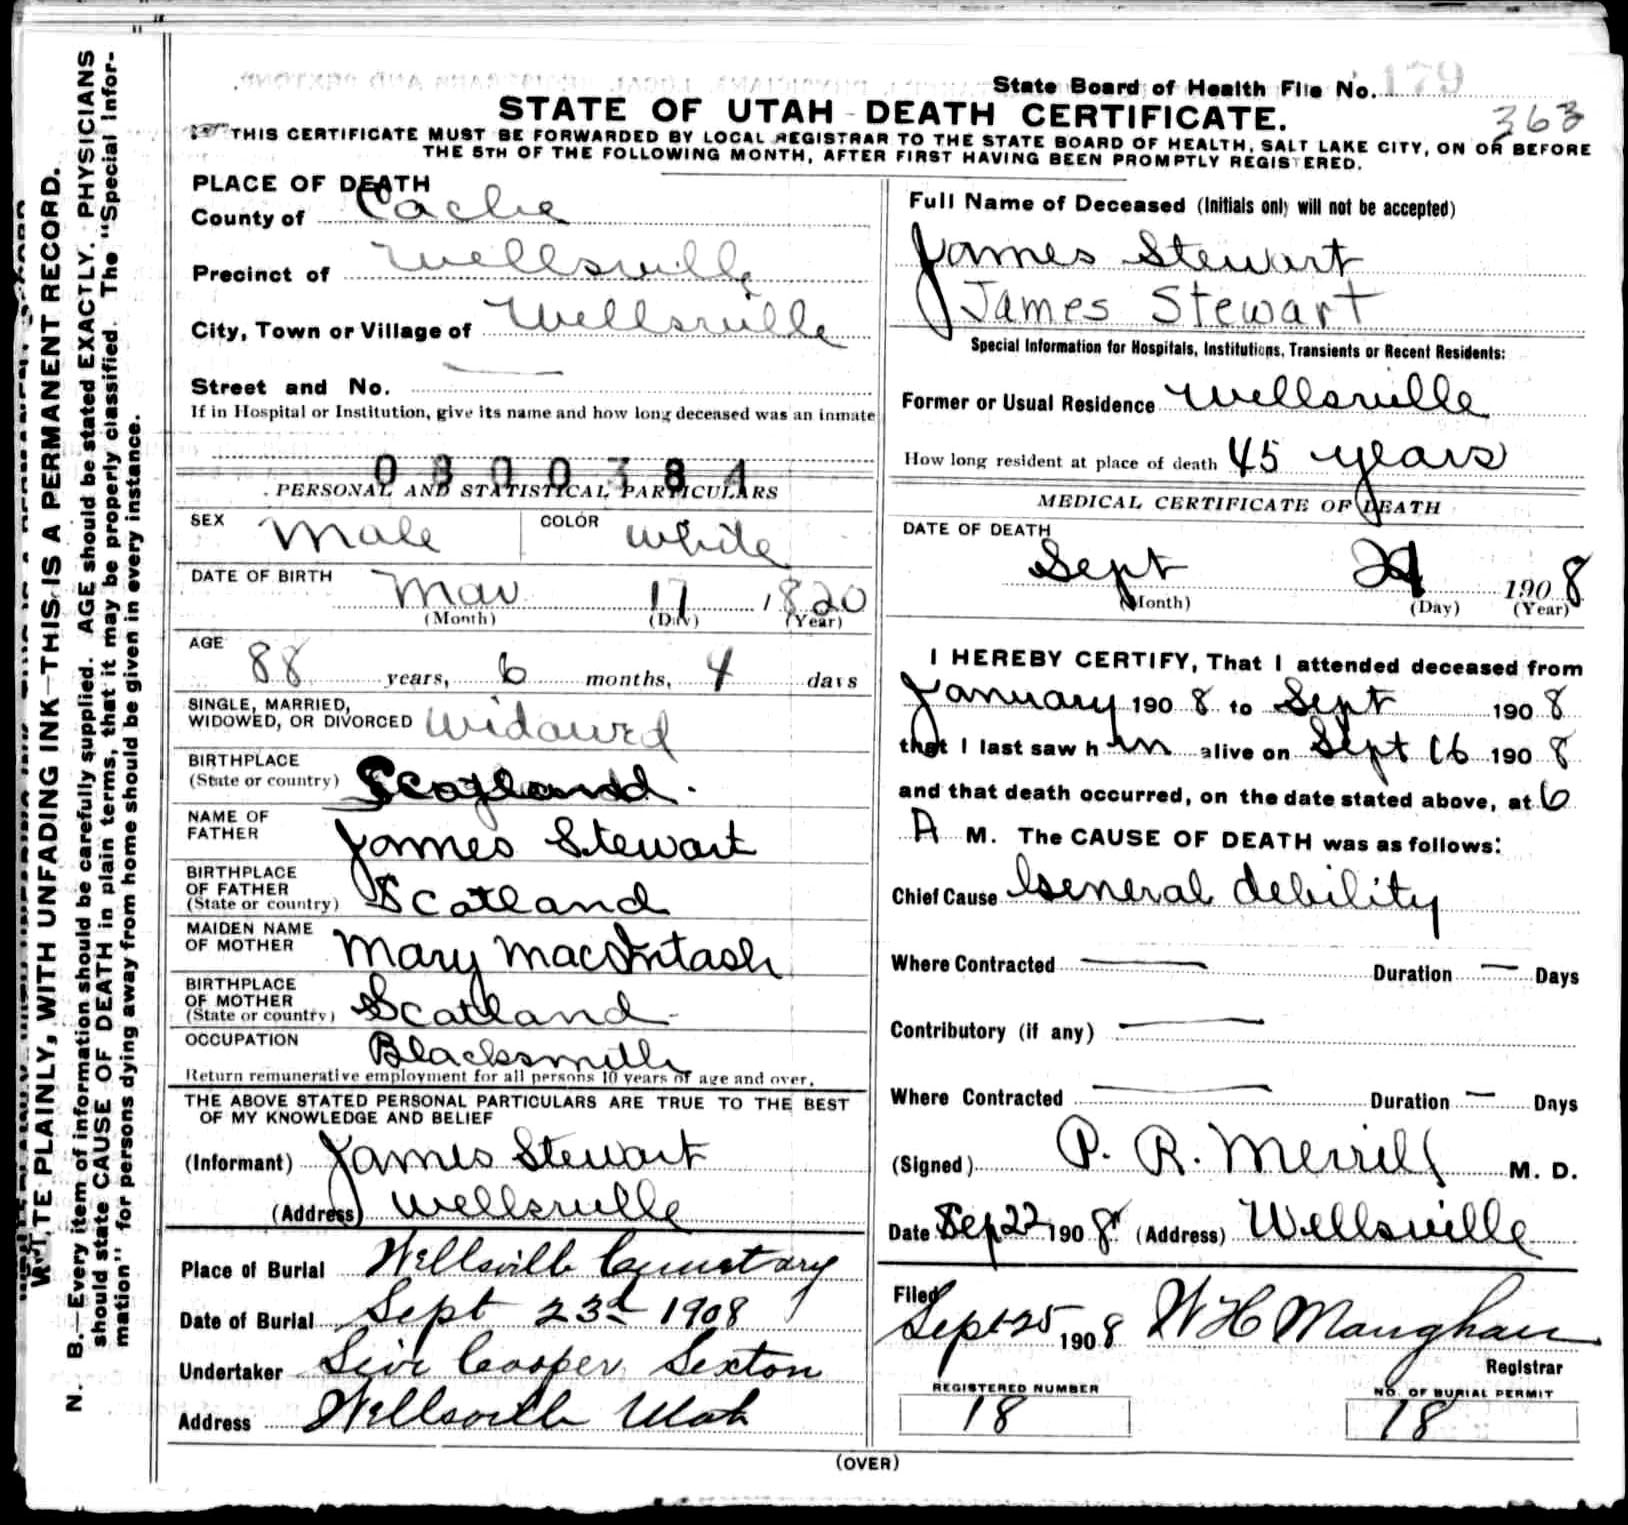 State Board of Health File No. 179
STATE OF UTAH - DEATH CERTIFICATE.
363
THIS CERTIFICATE MUST BE FORWARDED BY LOCAL REGISTRAR TO THE STATE BOARD OF HEALTH, SALT LAKE CITY, ON OR BEFORE
THE 5TH OF THE FOLLOWING MONTH, AFTER FIRST HAVING BEEN PROMPTLY REGISTERED.
WRITE PLAINLY, WITH UNFADING INK—THIS IS A PERMANENT RECORD.
N. B.—Every item of information should be carefully supplied. AGE should be stated EXACTLY. PHYSICIANS
should state CAUSE OF DEATH in plain terms, that it may be properly classified. The "Special Infor-
mation" for persons dying away from home should be given in every instance.
PLACE OF DEATH
County of Cache
Precinct of Wellsville
City, Town or Village of Wellsville
Street and No. —
If in Hospital or Institution, give its name and how long deceased was an inmate
PERSONAL AND STATISTICAL PARTICULARS
SEX Male COLOR White
DATE OF BIRTH Mar 17 1820
(Month) (Day) (Year)
AGE 88 years, 6 months, 4 days
SINGLE, MARRIED,
WIDOWED, OR DIVORCED Widowed
BIRTHPLACE
(State or country) Scotland.
NAME OF
FATHER James Stewart
BIRTHPLACE
OF FATHER
(State or country) Scotland
MAIDEN NAME
OF MOTHER Mary MacIntash
BIRTHPLACE
OF MOTHER
(State or country) Scotland
OCCUPATION Blacksmith
Return remunerative employment for all persons 10 years of age and over.
THE ABOVE STATED PERSONAL PARTICULARS ARE TRUE TO THE BEST
OF MY KNOWLEDGE AND BELIEF
(Informant) James Stewart
(Address) Wellsville
Place of Burial Wellsville Cemetary
Date of Burial Sept 23d 1908
Undertaker Cooper Sexton
Address Wellsville Utah
Full Name of Deceased (Initials only will not be accepted)
James Stewart
James Stewart
Special Information for Hospitals, Institutions, Transients or Recent Residents:
Former or Usual Residence Wellsville
How long resident at place of death 45 years
MEDICAL CERTIFICATE OF DEATH
DATE OF DEATH
Sept 21 1908
(Month) (Day) (Year)
I HEREBY CERTIFY, That I attended deceased from
January 1908 to Sept 1908
that I last saw him alive on Sept 16 1908
and that death occurred, on the date stated above, at 6
A M. The CAUSE OF DEATH was as follows:
Chief Cause General debility
Where Contracted — Duration — Days
Contributory (if any) —
Where Contracted — Duration — Days
(Signed) P. R. Merrill M. D.
Date Sep 22 1908 (Address) Wellsville
Filed
Sept 25 1908 W H Maughan
Registrar
REGISTERED NUMBER
18
NO. OF BURIAL PERMIT
18
(OVER)